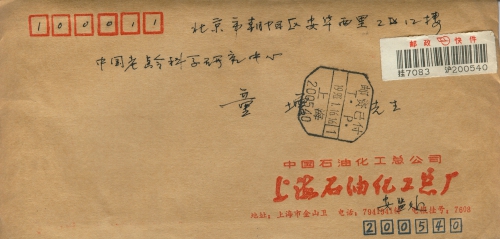 100011
北京市朝阳区安华西里2区12楼
中国老龄科学研究中心
童 先生
邮政快件
挂7083 沪200540
邮资已付
T.P.
上海
200540
中国石油化工总公司
上海石油化工总厂
地址：上海市金山卫 电话：
200540